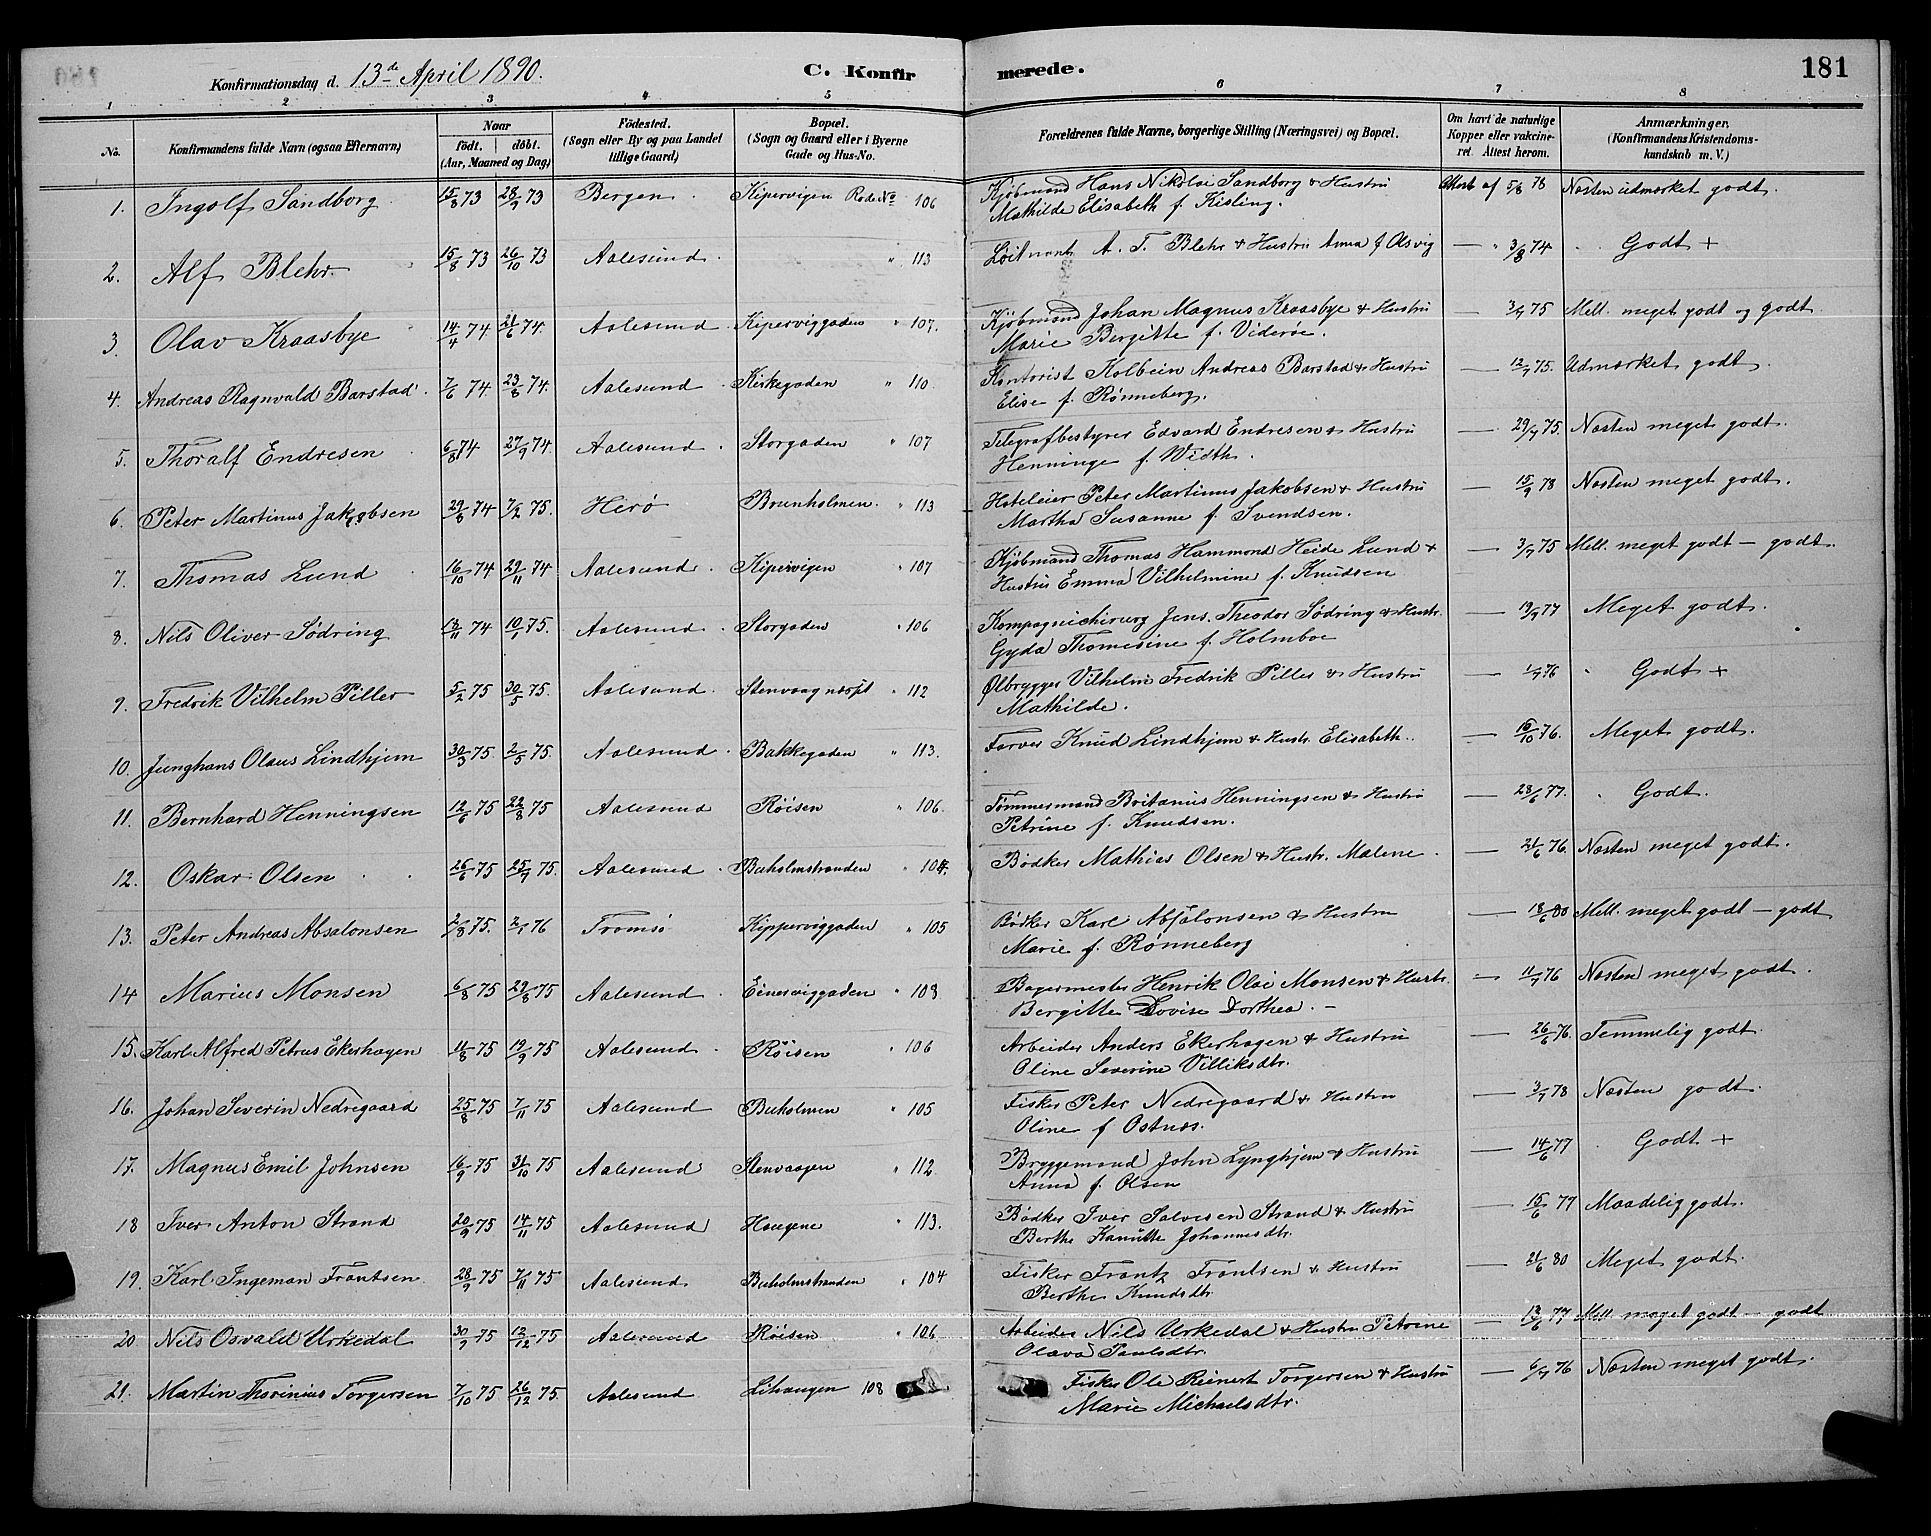 Konfirmationsdag d. 13de April 1890. C. Konfirmerede. 181
1 2 3 4 5 6 7 8
No. Konfirmandens fulde Navn (ogsaa Efternavn) Naar født. døbt. (Aar, Maaned og Dag) Födested. (Sogn eller By og paa Landet tillige Gaard) Bopæl. (Sogn og Gaard eller i Byerne Gade og Hus-No. Forældrenes fulde Navne, borgerlige Stilling (Næringsvei) og Bopæl. Om havt de naturlige Kopper eller vakcineret. Attest herom. Anmærkninger, (Konfirmandens Kristendomskundskab m. V.)
1. Ingolf Sandborg 15/8 73 28/9 73 Bergen. Kipervigen Rode No 106 Kjøbmand Hans Nikolai Sandborg & Hustru Attest af 5/8 76 Næsten udmærket godt.
Mathilde Elisabeth f. Kisling.
2. Alf Blehr 15/8 73 26/10 73 Aalesund. " 113 Løitnant A. T. Blehr & Hustru Anna f Olsvig — " 3/8 74 Godt +
3. Olav Kraasbye 14/4 74 21/6 74. Aalesund Kiperviggaden " 107. Kjøbmand Johan Magnus Kraasbye & Hustru — 3/7 75 Mell. meget godt og godt.
Marie Bergitte f. Viderøe.
4. Andreas Ragnvald Barstad. 7/6 74. 23/8 74. Aalesund. Kirkegaden " 110 Kontorist Kolbein Andreas Barstad & Hustru — 12/7 75. Udmærket godt.
Elise f. Rønneberg.
5. Thoralf Endresen 6/8 74 27/9 74. Aalesund. Storgaden " 107 Telegrafbestyrer Edvard Endresen & Hustru — 29/7 75. Næsten meget godt.
Henninge f. Width.
6. Peter Martinus Jakobsen 29/8 74 7/2 75. Herø Brunholmen. " 113 Hoteleier Peter Martinus Jakobsen & Hustru — 15/9 78 Næsten meget godt.
Martha Susanne f. Svendsen.
7. Thomas Lund 16/10 74 29/11 74 Aalesund. Kipervigen " 107 Kjøbmand Thomas Hammond Heide Lund & — 3/7 75 Mell. meget godt — godt.
Hustru Emma Vilhelmine f. Knudsen
8. Nils Oliver Södring 13/11 74 10/1 75. Aalesund. Storgaden " 106 Kompagnichirurg Jens Theodor Södring & Hustr. — 19/7 77 Meget godt.
Gyda Thomesine f. Holmboe
9. Fredrik Vilhelm Piller 5/2 75 30/5 75. Aalesund. " 112 Ølbrygger Vilhelm Fredrik Piller & Hustru — 1/7 76 " Godt +
Mathilde.
10. Junghans Olaus Lindhjem 30/3 75. 2/5 75. Aalesund. Bakkegaden " 113. Farver Knud Lindhjem & Hustr. Elisabeth. — 15/10 76. Meget godt.
11. Bernhard Henningsen 12/6 75 22/8 75 Aalesund Röisen " 106. Tømmermand Britanius Henningsen & Hustru — 28/6 77. " Godt.
Petrine f. Knudsen.
12. Oskar Olsen 26/6 75 25/7 75. Aalesund. Buholmstranden " 104. Bödker Mathias Olsen & Hustr. Malene. — 21/6 76. Næsten meget godt.
13. Peter Andreas Absalonsen 2/8 75. 2/1 76 Tromsö Kipperviggaden " 105 Bödker Karl Absalonsen & Hustru — 18/6 80 Mell. meget godt — godt
Marie f. Rønneberg
14 Marius Monsen 6/8 75 29/8 75 Aalesund. Einesviggaden " 108 Bagermester Henrik Olai Monsen & Hustr. — 11/7 76 Næsten meget godt.
Bergitte Lovise Dorthea. —
15. Karl Alfred Petrus Ekerhagen 11/8 75 19/9 75 Aalesund. Röisen " 106 Arbeider Anders Ekerhagen & Hustru — 26/6 76. Temmelig godt.
Oline Severine Villiksdtr.
16. Johan Severin Nedregaard 25/8 75 7/11 75 Aalesund Buholmen " 105 Fisker Peter Nedregaard & Hustru — 3/7 78 Næsten godt.
Oline f Ostnæs.
17. Magnus Emil Johnsen 16/9 75 31/10 75 Aalesund Stenvaagen " 112 Bryggemand John Lynghjem & Hustru — 14/6 77 Godt +
Anna f. Olsen
18 Iver Anton Strand 20/9 75 14/11 75 Aalesund Haugene " 113. Bödker Iver Salvesen Strand & Hustru — 15/6 77 Maadelig godt.
Berthe Kanutte Johannesdtr.
19. Karl Ingeman Frantsen. 28/9 75 7/11 75 Aalesund Buholmstranden " 104 Fisker Frantz Frantsen & Hustru — 21/6 80 Meget godt.
Berthe Knudsdtr
20 Nils Osvald Urkedal 30/9 75 12/12 75 Aalesund Röisen " 106 Arbeider Nils Urkedal & Hustru Petrine — 13/6 77 Mell. meget godt — godt
Olava Paulsdtr.
21. Martin Thorinius Torgersen 7/10 75 26/12 75. Aalesund Lihaugen 108 Fisker Ole Reinert Torgersen & Hustru — 6/7 76 Næsten meget godt.
Marie Michaelsdtr.